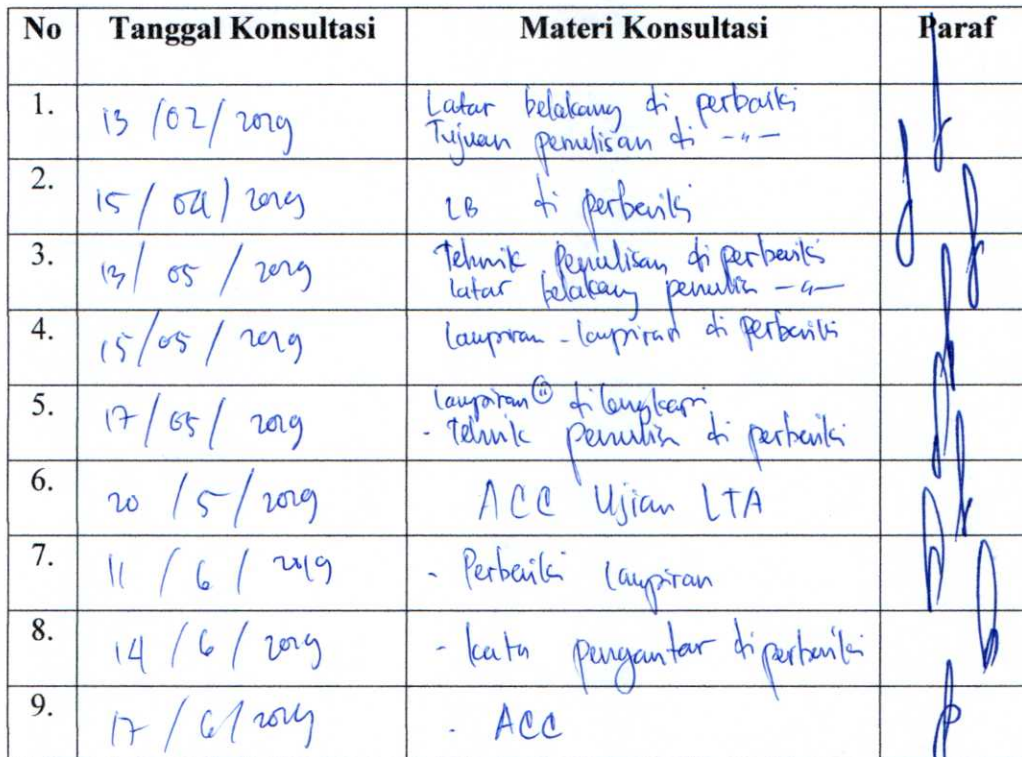 No Tanggal Konsultasi Materi Konsultasi Paraf
1. 13 /02/ 2019 Latar belakang di perbaiki
Tujuan penulisan di -〃-
2. 15 / 04 / 2019 LB di perbaiki
3. 13 / 05 / 2019 Tehnik penulisan di perbaiki
latar belakang penulis -〃-
4. 15/05 / 2019 lampiran - lampiran di perbaiki
5. 17 / 05 / 2019 lampiran di lengkapi
- Tehnik penulis di perbaiki
6. 20 / 5 / 2019 ACC Ujian LTA
7. 11 / 6 / 2019 - Perbaiki lampiran
8. 14 / 6 / 2019 - kata pengantar di perbaiki
9. 17 / 6 / 2019 - ACC